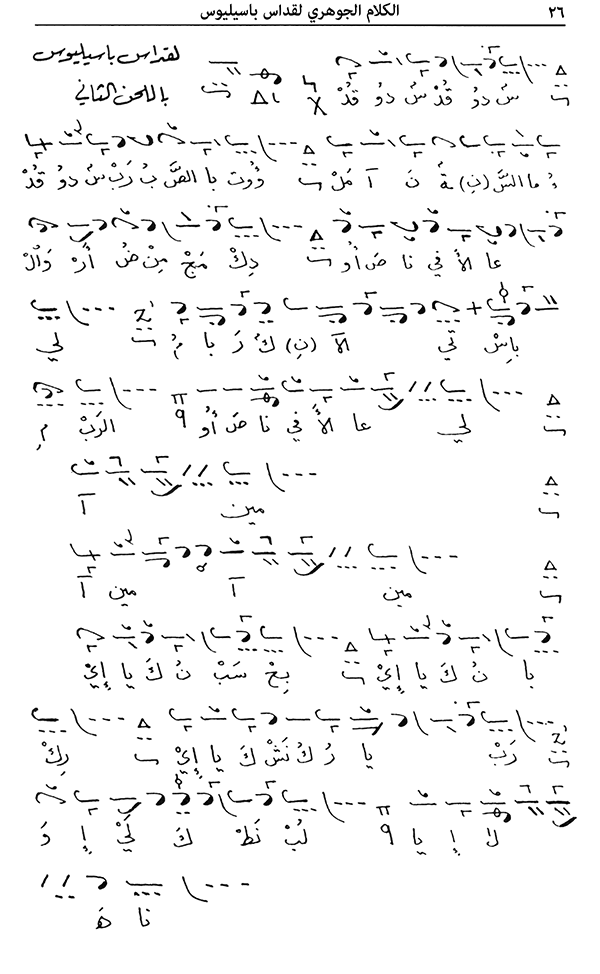 ٢٦
الكلام الجوهري لقداس باسيليوس
لقداس باسيليوس
باللحن الثاني
قُدْ دو سٌ قُدْ دو سٌ
قُدْ دو سٌ رَبْ بُ الصَّ با ؤوت مَلْ آ نَ ةٌ (نِ) السَّ ما ءُ
وَالْ أَرْ ضُ مِنْ مَجْ دِكْ أو صَ نا في الأ عا
لي مُ با رَ كُ (نِ) الآ تي باسْ
مِ الرَبْ أو صَ نا في الأ عا لي
آ مين
آ مين آ مين
إيْ يا كَ نُ سَبْ بِحْ إيْ يا كَ نُ با
رِكْ إيْ يا كَ نَشْ كُ رُ يا رَبْ
وَ إِ لَيْ كَ نَطْ لُبْ يا إ لا
هَ نا